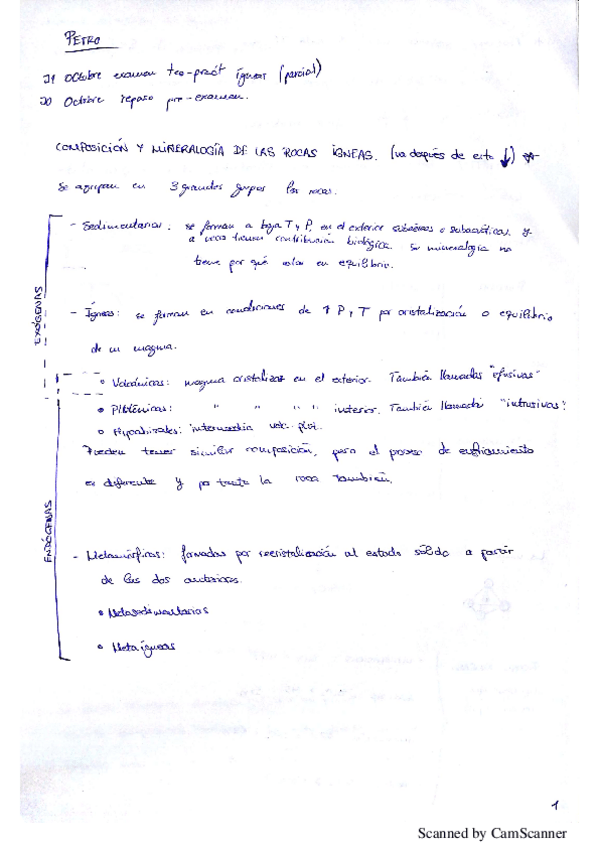 PETRO
21 Octubre examen teo-práct ígneas (parcial)
20 Octubre repaso pre-examen.
COMPOSICIÓN Y MINERALOGÍA DE LAS ROCAS ÍGNEAS. (va después de esto ↓)
Se agrupan en 3 grandes grupos las rocas.
EXÓGENAS
- Sedimentarias: se forman a baja T y P, en el exterior subaéreas o subacuáticas y
a veces tienen contribución biológica. Su mineralogía no
tiene por qué estar en equilibrio.
- Ígneas: se forman en condiciones de ↑ P y T por cristalización o equilibrio
de un magma.
• Volcánicas: magma cristaliza en el exterior. También llamadas "efusivas"
• Plutónicas: " " " " interior. También llamadas "intrusivas".
• Hipoabisales: intermedia volc. plut.
Pueden tener similar composición, pero el proceso de enfriamiento
es diferente y por tanto la roca también.
ENDÓGENAS
- Metamórficas: formadas por recristalización al estado sólido a partir
de las dos anteriores.
• Metasedimentarias
• Metaígneas
1
Scanned by CamScanner